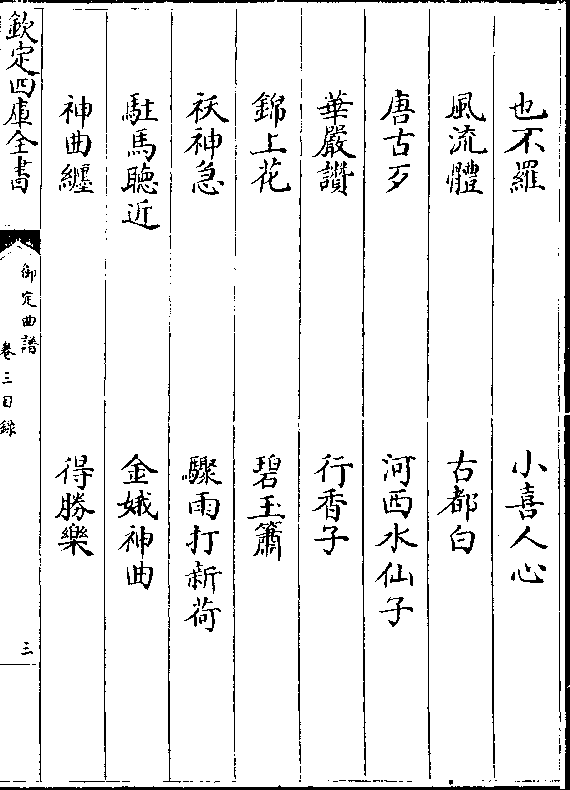 也不羅　小喜人心
風流體　古都白
唐古歹　河西水仙子
華嚴讃　行香子
錦上花　碧玉簫
祅神急　驟雨打新荷
駐馬聽近　金娥神曲
神曲纏　得勝樂
欽定四庫全書
御定曲譜
卷三目録
三